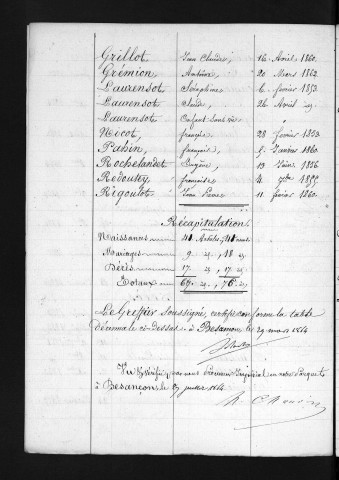 Grillot, Jean Claude, 16 Avril 1860.
Grémion, Antoine 20 Mars 1862.
Laurensot, Séraphine 6 février 1853
Laurensot, Claude, 26 Avril id
Laurensot, Enfant sans vie
Nicot, françois 28 février 1853.
Pahin, françois, 5 Janvier 1860.
Rochelandet, Eugène, 13 Juin 1856
Redoutey, francoise 4 7bre 1855
Rigoulot, Jean Pierre 11 février 1860.
Récapitulation.
Naissances 41 Articles, 41 noms
Mariages 9 id, 18 id
Décès 17 id, 17 id
Totaux 67 id, 76 id
Le Greffier soussigné, certifie conforme la table
décennale ci-dessus. à Besançon le 29 mars 1864
Vu & vérifié, par nous Procureur Impérial en notre Parquet
à Besançon le juillet 1864